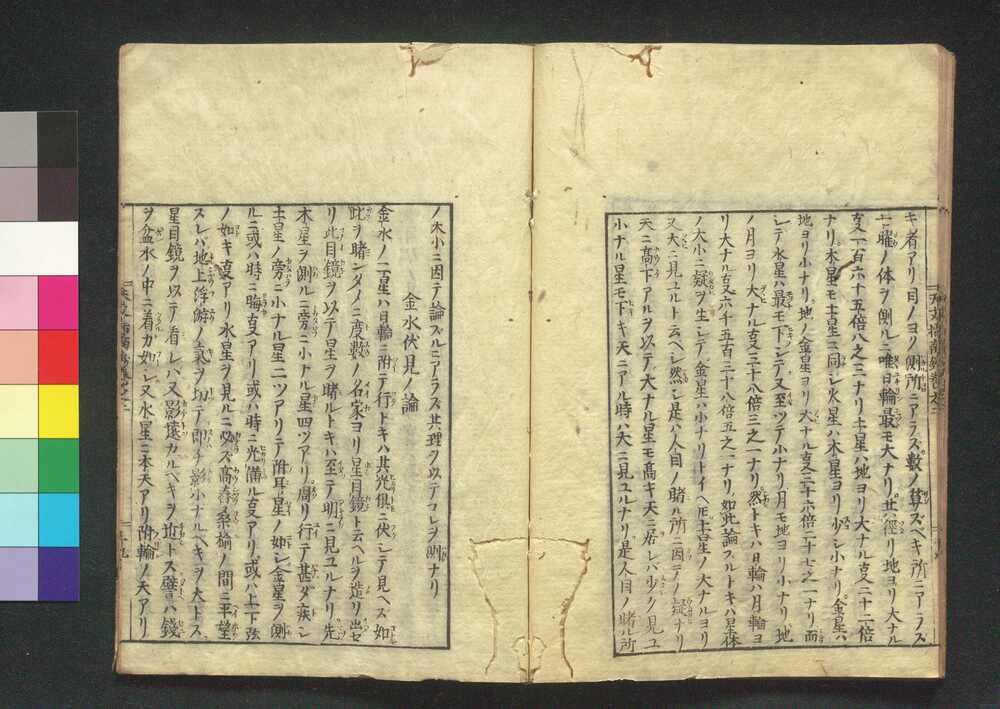 キ者アリ目ノヨク側所ニアラズ数ノ算スベキ所ニアラズ
七曜ノ体ヲ側ルニ唯日輪最モ大ナリ其径リ地ヨリ大ナル
㕝一百六十五倍八之三ナリ土星ハ地ヨリ大ナル㕝二十二倍
ナリ木星モ土星ニ同シ火星ハ木星ヨリ少シ小ナリ金星ハ
地ヨリ小ナリ地ノ金星ヨリ大ナル㕝三十六倍二十七之一ナリ而
シテ水星ハ最モ下シテ又至ツテ小ナリ月モ地ヨリ小ナリ地
ノ月ヨリ大ナル㕝三十八倍三之一ナリ然トキハ日輪ハ月輪ヨ
リ大ナル㕝六千五百三十八倍五之一ナリ如此論ズルトキハ星体
ノ大小ニ疑ヲ生シテ金星ハ小ナリトイヘ𪜈土星ノ大ナルヨリ
又大ニ見ユルト云ヘシ然シ是ハ人目ノ睹ル所ニ因テノ疑ナリ
天ニ高下アルヲ以テ大ナル星モ高キ天ニ居レバ少ク見ユ
小ナル星モ下キ天ニアル時ハ大ニ見ユルナリ是人目ノ睹ル所
ノ大小ニ因テ論ズルニアラズ其理ヲ以テコレヲ明ナリ
金水伏見ノ論
金水ノ二星ハ日輪ニ附テ行トキハ其光倶ニ伏シテ見ヘズ如
此ヲ睹ンタメニ度数ノ名家ヨリ星目鏡ト云ヘルヲ造リ出セ
リ此目鏡ヲ以テ星ヲ睹ルトキハ至テ明ニ見ユルナリ先
木星ヲ側ルニ旁ニ小ナル星四ツアリ周リ行テ甚ダ疾シ
土星ノ旁ニ小ナル星二ツアリテ附耳星ノ如シ金星ヲ側
ルニ或ハ時ニ晦㕝アリ或ハ時ニ光備ル㕝アリ或ハ上下弦
ノ如キ㕝アリ水星ヲ見ルニ必ズ高舂桑榆ノ間ニ平望
スレバ地上浮游ノ氣ヲ切テ即チ影小ナルヘキヲ大トス
星目鏡ヲ以テ看レハ又影遠カルベキヲ近トス譬ハ錢
ヲ盆水ノ中ニ看カ如シ又水星ニ本天アリ附輪ノ天アリ